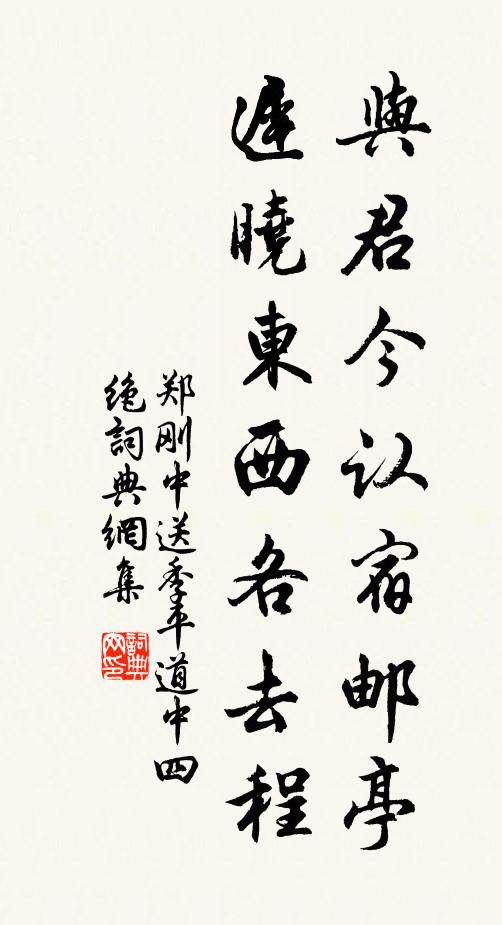 與君今认宿邮亭
遲曉東西各去程
郑刚中送季平道中四
绝詞典網集
詞典网印